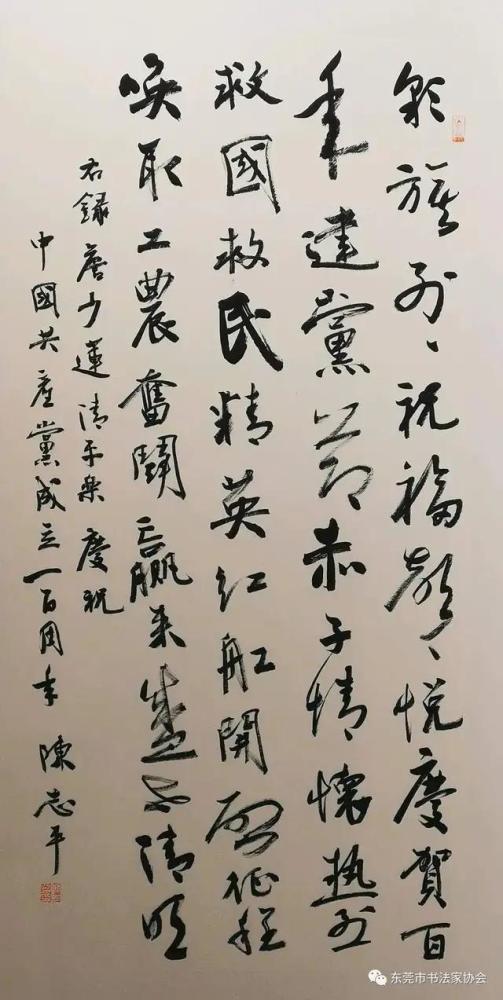 彩旗列〻祝福聲〻悅慶賀百
年建黨節赤子情懷熱烈
救國救民精英紅船開啟征程
喚取工農奮鬥贏來盛世清明
右錄唐少清平樂慶祝
中國共產黨成立一百周年 陳志平
东莞市书法家协会